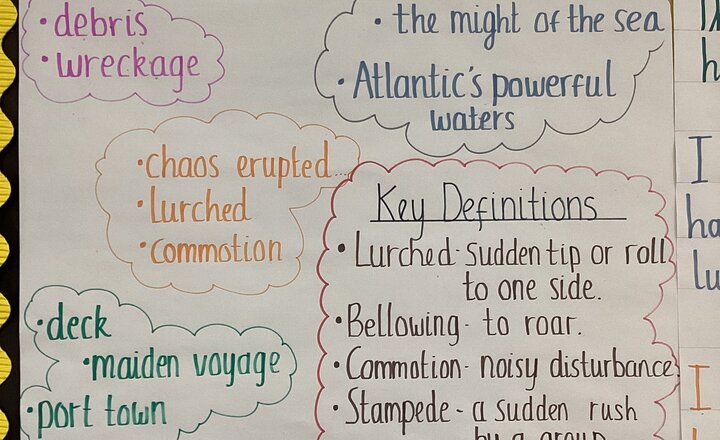 • debris
• wreckage
• the might of the sea
• Atlantic's powerful
waters
• chaos erupted...
• lurched
• commotion
Key Definitions
• Lurched - sudden tip or roll
to one side.
• Bellowing - to roar.
• Commotion - noisy disturbance
• Stampede - a sudden rush
by a group
• deck
• maiden voyage
• port town
I
ha
lu
I